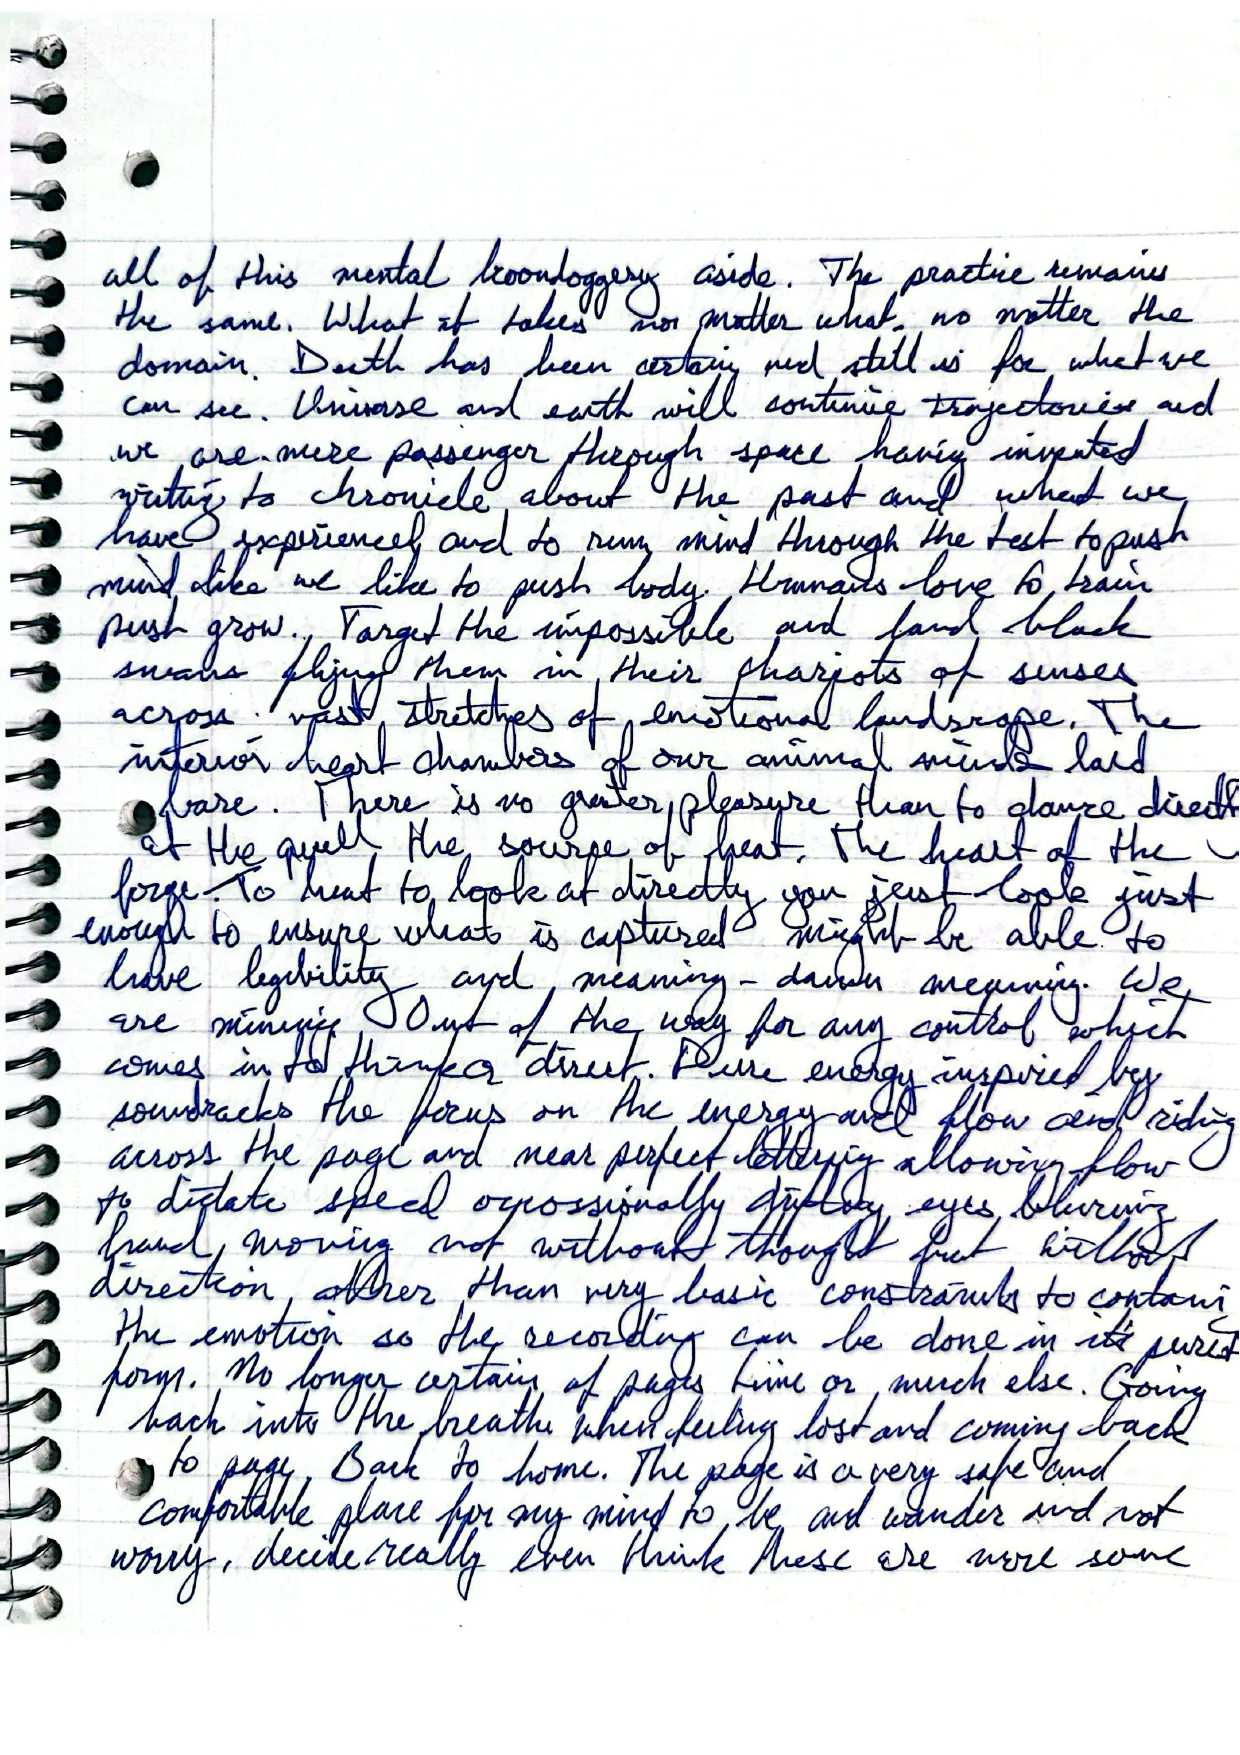 all of this mental boondoggery aside. The practice remains
the same. What it takes no matter what. no matter the
domain. Death has been certain and still is for what we
can see. Universe and earth will continue trajectories and
we are mere passenger through space having invented
writing to chronicle about the past and what we
have experienced and to run mind through the test to push
mind like we like to push body. Humans love to train
push grow. Target the impossible and land black
swans flying them in their chariots of senses
across vast stretches of emotional landscape. The
interior heart chambers of our animal minds laid
bare. There is no greater pleasure than to dance
at the quell the source of heat. The heart of the
forge. To look at directly you just look just
enough to ensure what is captured might be able to
have legibility and meaning - damn meaning. We
are mining. Out of the way for any control which
comes in to direct. Pure energy inspired by
soundtracks the focus on the energy and flow and riding
across the page and near perfect lettering allowing flow
to dictate speed eyes blurring
hand moving not without thought but without
direction other than very basic constraints to contain
the emotion so the recording can be done in its purest
form. No longer certain of pages time or much else. Going
back into the breathe when feeling lost and coming back
to page. Back to home. The page is a very safe and
comfortable place for my mind to be and wander and not
worry, decide really even think these are more some